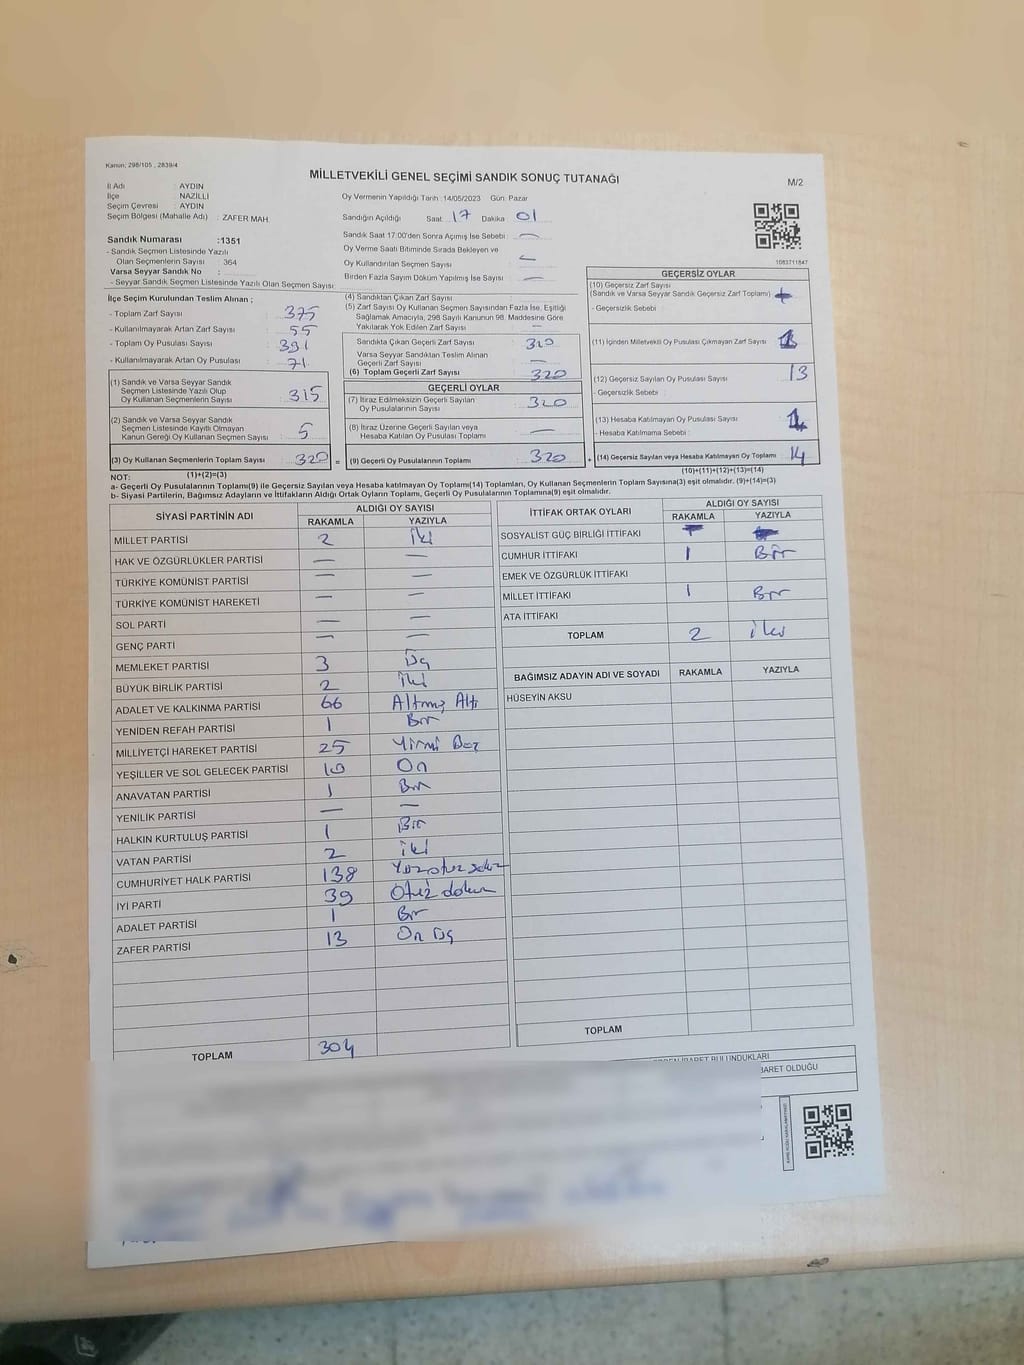 Kanun; 298/105 , 2839/4
MİLLETVEKİLİ GENEL SEÇİMİ SANDIK SONUÇ TUTANAĞI
M/2
İl Adı : AYDIN
İlçe : NAZİLLİ
Seçim Çevresi : AYDIN
Seçim Bölgesi (Mahalle Adı) : ZAFER MAH.
Oy Vermenin Yapıldığı Tarih :14/05/2023 Gün: Pazar
Sandığın Açıldığı Saat 17 Dakika 01
Sandık Saat 17:00'den Sonra Açılmış İse Sebebi : —
Oy Verme Saati Bitiminde Sırada Bekleyen ve
Oy Kullandırılan Seçmen Sayısı : —
Birden Fazla Sayım Döküm Yapılmış İse Sayısı : —
Sandık Numarası :1351
- Sandık Seçmen Listesinde Yazılı
Olan Seçmenlerin Sayısı : 364
Varsa Seyyar Sandık No :
- Seyyar Sandık Seçmen Listesinde Yazılı Olan Seçmen Sayısı:
1083711847
İlçe Seçim Kurulundan Teslim Alınan ;
- Toplam Zarf Sayısı : 375
- Kullanılmayarak Artan Zarf Sayısı : 55
- Toplam Oy Pusulası Sayısı : 391
- Kullanılmayarak Artan Oy Pusulası : 71
(1) Sandık ve Varsa Seyyar Sandık
Seçmen Listesinde Yazılı Olup
Oy Kullanan Seçmenlerin Sayısı : 315
(2) Sandık ve Varsa Seyyar Sandık
Seçmen Listesinde Kayıtlı Olmayan
Kanun Gereği Oy Kullanan Seçmen Sayısı : 5
(3) Oy Kullanan Seçmenlerin Toplam Sayısı : 320
(4) Sandıktan Çıkan Zarf Sayısı
(5) Zarf Sayısı Oy Kullanan Seçmen Sayısından Fazla İse, Eşitliği
Sağlamak Amacıyla, 298 Sayılı Kanunun 98. Maddesine Göre
Yakılarak Yok Edilen Zarf Sayısı : —
Sandıkta Çıkan Geçerli Zarf Sayısı : 320
Varsa Seyyar Sandıktan Teslim Alınan
Geçerli Zarf Sayısı : —
(6) Toplam Geçerli Zarf Sayısı : 320
GEÇERLİ OYLAR
(7) İtiraz Edilmeksizin Geçerli Sayılan
Oy Pusulalarının Sayısı : 320
(8) İtiraz Üzerine Geçerli Sayılan veya
Hesaba Katılan Oy Pusulası Toplamı : —
= (9) Geçerli Oy Pusulalarının Toplamı : 320
GEÇERSİZ OYLAR
(10) Geçersiz Zarf Sayısı
(Sandık ve Varsa Seyyar Sandık Geçersiz Zarf Toplamı)
- Geçersizlik Sebebi :
(11) İçinden Milletvekili Oy Pusulası Çıkmayan Zarf Sayısı :
(12) Geçersiz Sayılan Oy Pusulası Sayısı : 13
- Geçersizlik Sebebi :
(13) Hesaba Katılmayan Oy Pusulası Sayısı :
- Hesaba Katılmama Sebebi :
+ (14) Geçersiz Sayılan veya Hesaba Katılmayan Oy Toplamı : 14
(1)+(2)=(3)
(10)+(11)+(12)+(13)=(14)
NOT:
a- Geçerli Oy Pusulalarının Toplamı(9) ile Geçersiz Sayılan veya Hesaba katılmayan Oy Toplamı(14) Toplamları, Oy Kullanan Seçmenlerin Toplam Sayısına(3) eşit olmalıdır. (9)+(14)=(3)
b- Siyasi Partilerin, Bağımsız Adayların ve İttifakların Aldığı Ortak Oyların Toplamı, Geçerli Oy Pusulalarının Toplamına(9) eşit olmalıdır.
SİYASİ PARTİNİN ADI ALDIĞI OY SAYISI
RAKAMLA YAZIYLA
MİLLET PARTİSİ 2 iki
HAK VE ÖZGÜRLÜKLER PARTİSİ — —
TÜRKİYE KOMÜNİST PARTİSİ — —
TÜRKİYE KOMÜNİST HAREKETİ — —
SOL PARTİ — —
GENÇ PARTİ — —
MEMLEKET PARTİSİ 3 Üç
BÜYÜK BİRLİK PARTİSİ 2 iki
ADALET VE KALKINMA PARTİSİ 66 Altmış Altı
YENİDEN REFAH PARTİSİ 1 Bir
MİLLİYETÇİ HAREKET PARTİSİ 25 Yirmi Beş
YEŞİLLER VE SOL GELECEK PARTİSİ 10 On
ANAVATAN PARTİSİ 1 Bir
YENİLİK PARTİSİ — —
HALKIN KURTULUŞ PARTİSİ 1 Bir
VATAN PARTİSİ 2 iki
CUMHURİYET HALK PARTİSİ 138 Yüzotuzsekiz
İYİ PARTİ 39 Otuz dokuz
ADALET PARTİSİ 1 Bir
ZAFER PARTİSİ 13 On Üç
TOPLAM 304
İTTİFAK ORTAK OYLARI ALDIĞI OY SAYISI
RAKAMLA YAZIYLA
SOSYALİST GÜÇ BİRLİĞİ İTTİFAKI
CUMHUR İTTİFAKI 1 Bir
EMEK VE ÖZGÜRLÜK İTTİFAKI
MİLLET İTTİFAKI 1 Bir
ATA İTTİFAKI
TOPLAM 2 iki
BAĞIMSIZ ADAYIN ADI VE SOYADI RAKAMLA YAZIYLA
HÜSEYİN AKSU
TOPLAM
BULUNDUKLARI
İBARET OLDUĞU